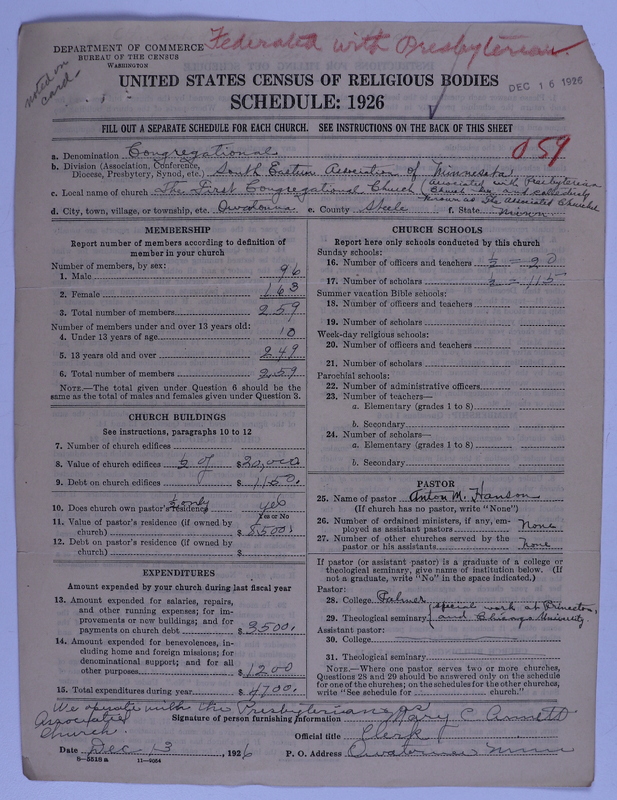 Federated with Presbyterian
DEPARTMENT OF COMMERCE
BUREAU OF THE CENSUS
WASHINGTON
noted on
card
UNITED STATES CENSUS OF RELIGIOUS BODIES
DEC 16 1926
SCHEDULE: 1926
FILL OUT A SEPARATE SCHEDULE FOR EACH CHURCH. SEE INSTRUCTIONS ON THE BACK OF THIS SHEET
059
a. Denomination Congregational
b. Division (Association, Conference,
Diocese, Presbytery, Synod, etc.) South Eastern Association of Minnesota
c. Local name of church The First Congregational Church (associated with Presbyterian
Church and collectively
known as The Associated Churches
d. City, town, village, or township, etc. Owatonna e. County Steele f. State Minn
MEMBERSHIP
Report number of members according to definition of
member in your church
Number of members, by sex:
1. Male 96
2. Female 163
3. Total number of members 259
Number of members under and over 13 years old:
4. Under 13 years of age 10
5. 13 years old and over 249
6. Total number of members 259
NOTE.—The total given under Question 6 should be the
same as the total of males and females given under Question 3.
CHURCH BUILDINGS
See instructions, paragraphs 10 to 12
7. Number of church edifices
8. Value of church edifices ½ of $20,000
9. Debt on church edifices $1150.
½ only
10. Does church own pastor's residence yes
Yes or No
11. Value of pastor's residence (if owned by
church) $5500.
12. Debt on pastor's residence (if owned by
church) $
EXPENDITURES
Amount expended by your church during last fiscal year
13. Amount expended for salaries, repairs,
and other running expenses; for im-
provements or new buildings; and for
payments on church debt $3500.
14. Amount expended for benevolences, in-
cluding home and foreign missions; for
denominational support; and for all
other purposes $1200
15. Total expenditures during year $4700.
CHURCH SCHOOLS
Report here only schools conducted by this church
Sunday schools:
16. Number of officers and teachers ½ = 20
17. Number of scholars ½ = 115
Summer vacation Bible schools:
18. Number of officers and teachers
19. Number of scholars
Week-day religious schools:
20. Number of officers and teachers
21. Number of scholars
Parochial schools:
22. Number of administrative officers
23. Number of teachers—
a. Elementary (grades 1 to 8)
b. Secondary
24. Number of scholars—
a. Elementary (grades 1 to 8)
b. Secondary
PASTOR
25. Name of pastor Anton M. Hanson
(If church has no pastor, write "None")
26. Number of ordained ministers, if any, em-
ployed as assistant pastors None
27. Number of other churches served by the
pastor or his assistants None
If pastor (or assistant pastor) is a graduate of a college or
theological seminary, give name of institution below. (If
not a graduate, write "No" in the space indicated.)
Pastor:
28. College Palmer (special work at Princeton,
29. Theological seminary and Chicago University
Assistant pastor:
30. College
31. Theological seminary
NOTE.—Where one pastor serves two or more churches,
Questions 28 and 29 should be answered only on the schedule
for one of the churches; on the schedules for the other churches,
write "See schedule for church."
We operate with the Presbyterians as
Associated
Church.
Signature of person furnishing information Mary C.
Official title Clerk
Date Dec 13, 1926 P. O. Address Owatonna Minn
8—5518 a 11—9064